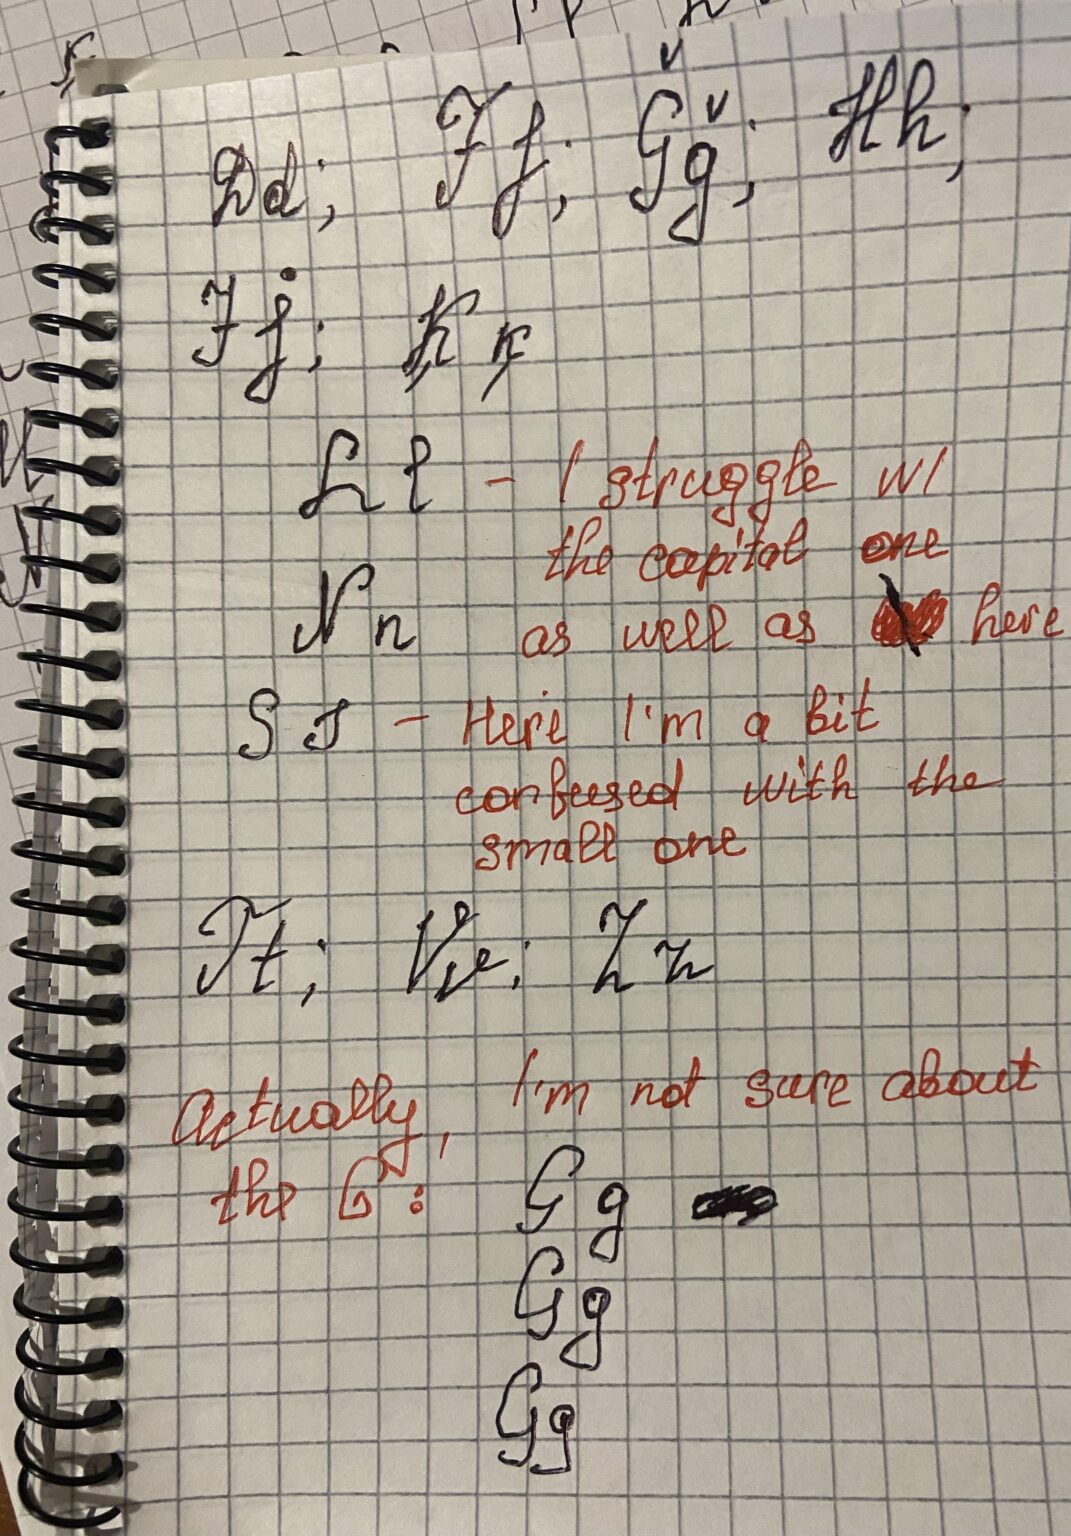 Dd; Ff; Ǧǧ; Hh;
Jj; Ķķ
Ll - I struggle w/
the capital one
Nn as well as here
Ss - Here I'm a bit
confused with the
small one
Tt; Vv; Zz
Actually, I'm not sure about
the G: Gg
Gg
Gg